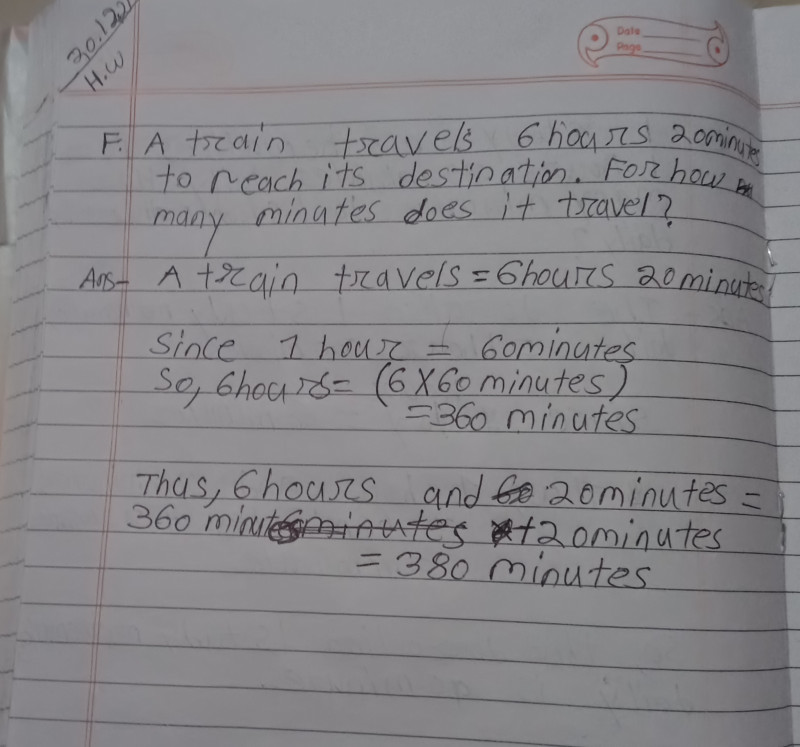 30.12.21
H.W
Date
Page
F. A train travels 6 hours 20minutes
to reach its destination. For how
many minutes does it travel?
Ans- A train travels = 6hours 20minutes
Since 1 hour = 60minutes
So, 6hours= (6X60 minutes)
=360 minutes
Thus, 6hours and 20minutes =
360 minutes +20minutes
= 380 minutes